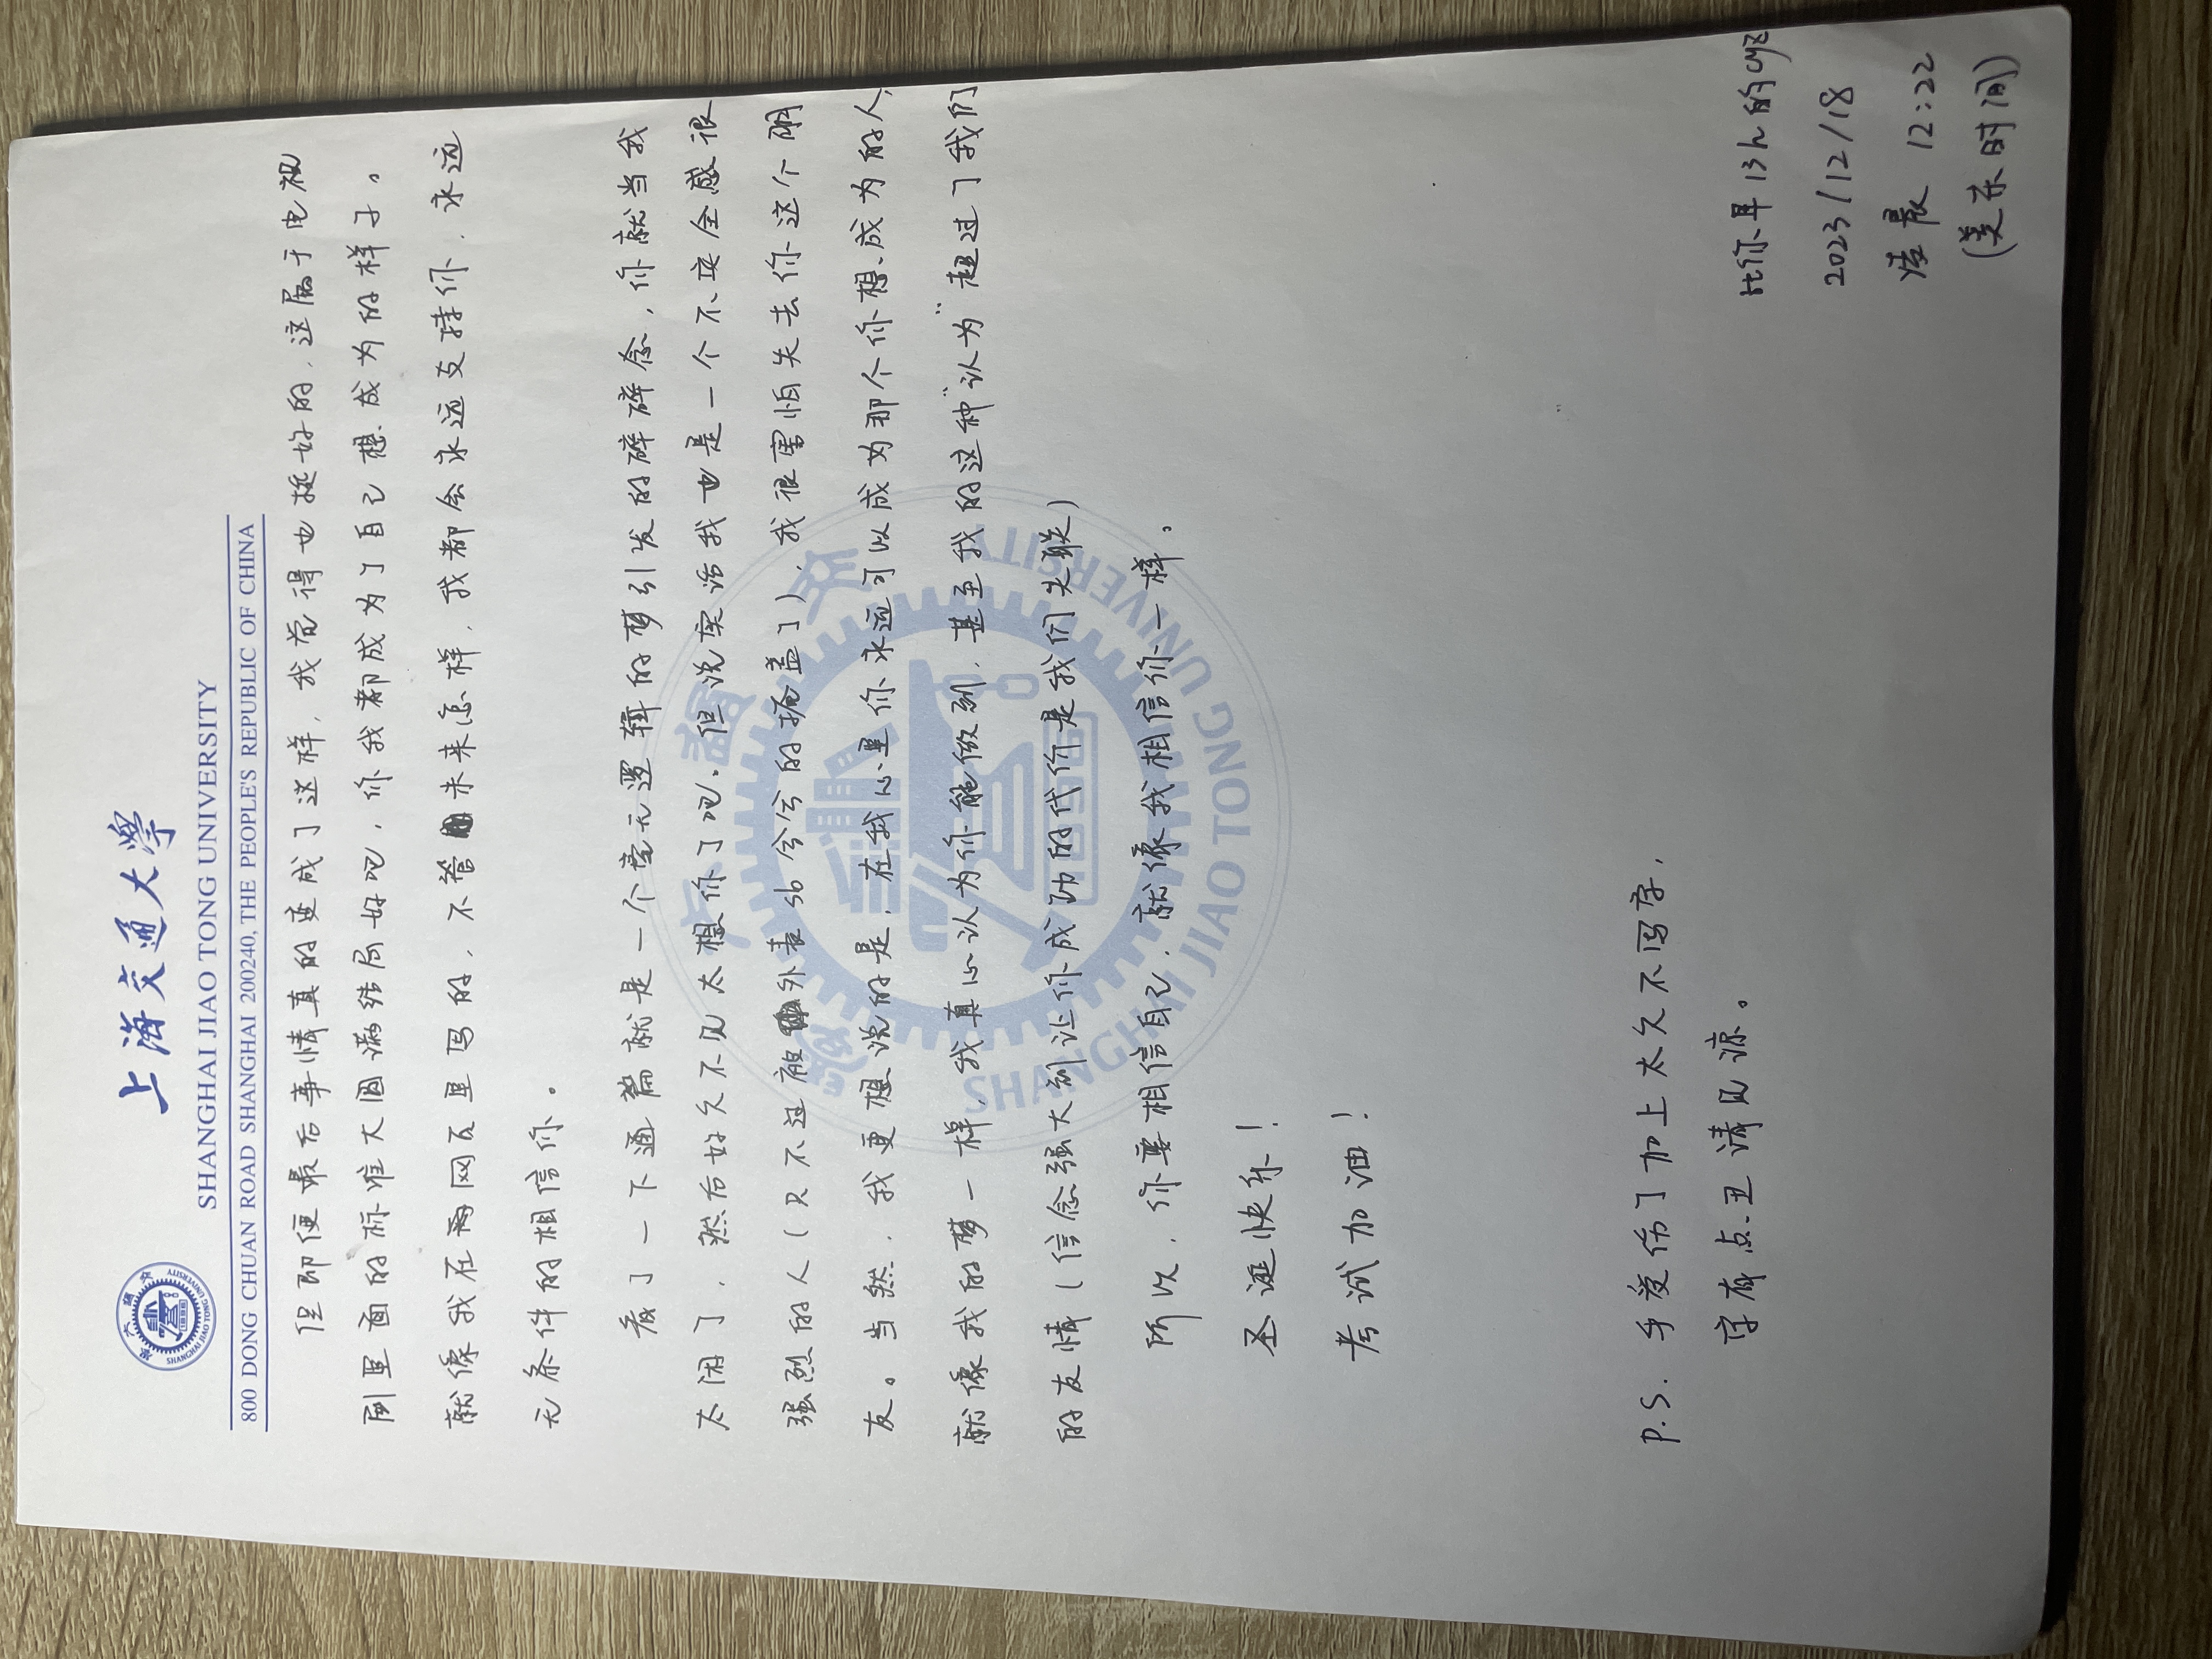 上海交通大學
SHANGHAI JIAO TONG UNIVERSITY
800 DONG CHUAN ROAD SHANGHAI 200240, THE PEOPLE'S REPUBLIC OF CHINA
但即便最后事情真的变成了这样，我觉得也挺好的，这属于电视
剧里面的标准大圆满结局好吧，你我都成为了自己想成为的样子。
就像我在网页里写的，不管未来怎样，我都会永远支持你，永远
无条件的相信你。
看了一下通篇就是一个毫无逻辑的梦引发的碎碎念，你就当我
太闲了，然后好久不见太想你了吧。但说实话我也是一个不安全感很
强烈的人（只不过被外表sb兮兮的掩盖了），我很害怕失去你这个朋
友。当然，我更想说的是，在我心里你永远可以成为那个你想成为的人，
就像我的梦一样，我真心认为你能做到，甚至我的这种“认为”超过了我们
的友情（信念强大到让你成功的代价是我们失联）
所以，你要相信自己，就像我相信你一样。
圣诞快乐！
考试加油！
P.S. 手受伤了加上太久不写字，
字有点丑请见谅。
比你早13h的cyz
2023/12/18
凌晨 12:22
（美东时间）
SHANGHAI JIAO TONG UNIVERSITY
1896